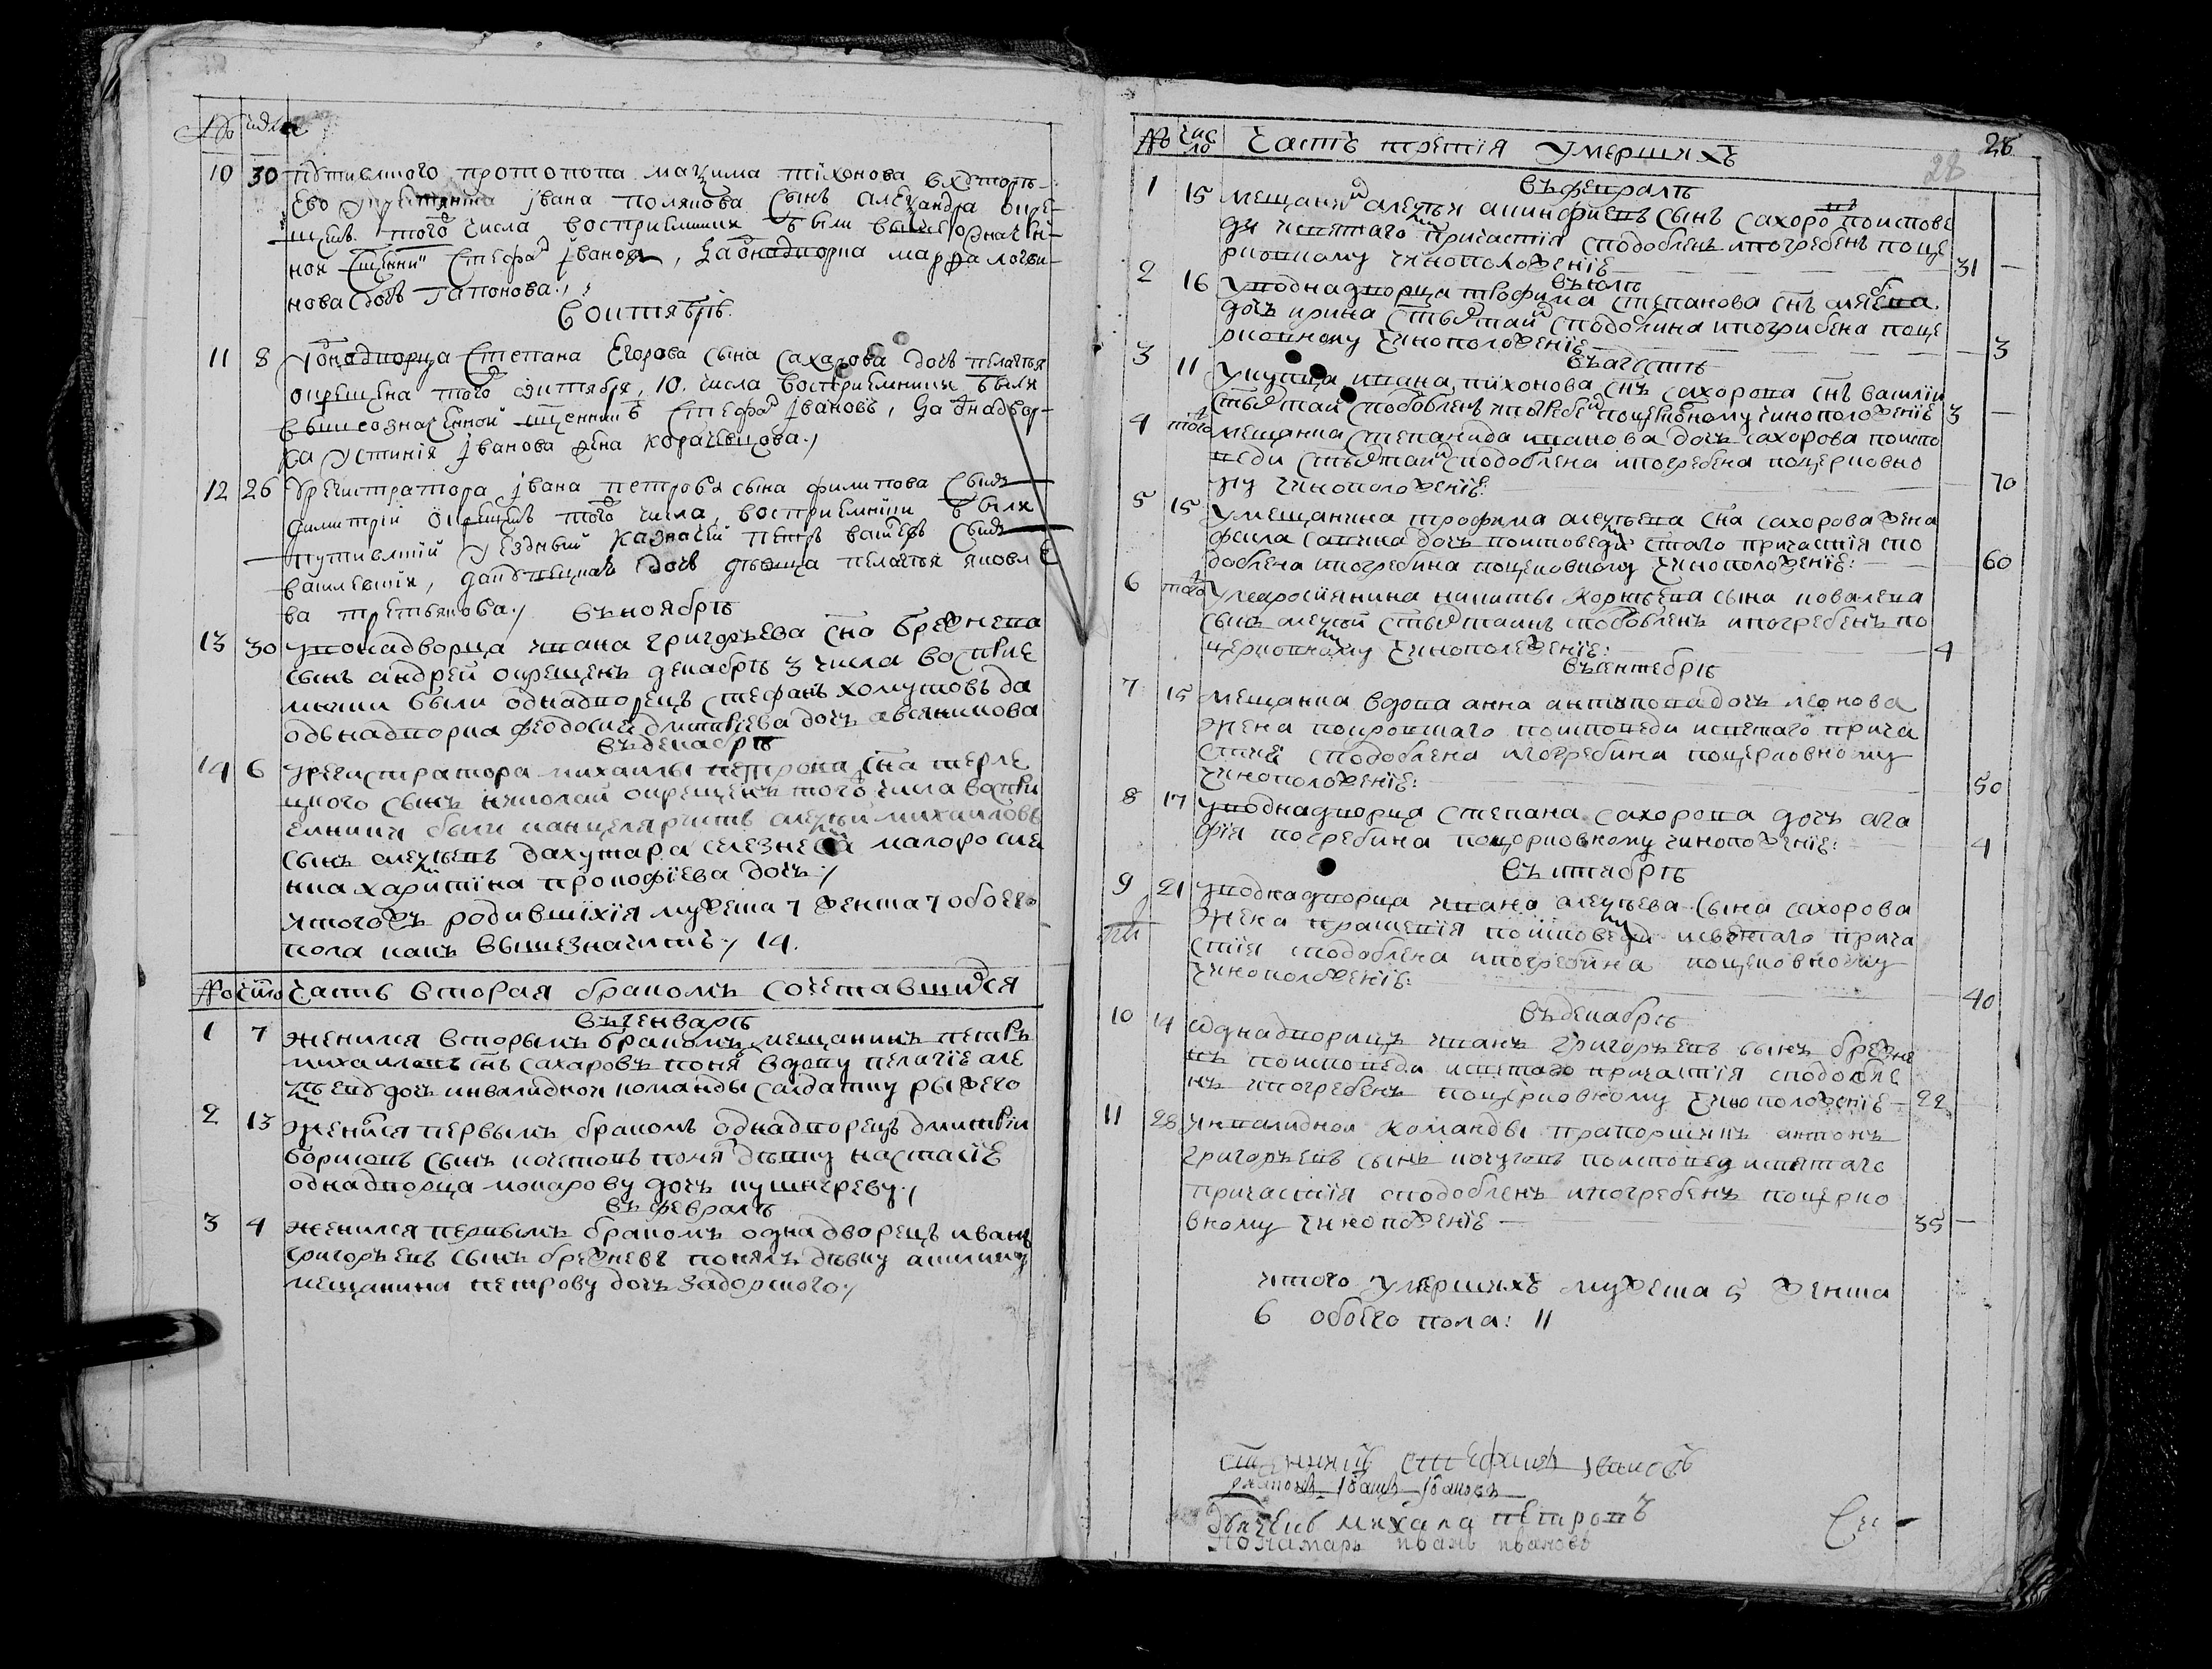 № числа
10 30 путивлского протопопа маѯима тихонова вхутор
ево Укрестянина Jвана полякова Сынъ Алеѯандра окре
щенъ того числа восприемники были вышеозначен
ной Сщенникъ Стефанъ Jвановъ, да однадворка марфа логви
нова дочь гапонова.
Воктябрѣ.
11 8 Уоднадворца Степана Егорова сына сахарова дочь пелагѣя
окрещена того октября, 10. числа восприемники были
вышеозначенной сщенникъ Стефанъ Jвановъ, да однадвор
ка Устинія Jванова жена корачевцова.
12 26 Урегистратора Jвана петрова сына филипова Сынъ
димитрій окрещенъ того числа, восприемники были
путивлскій Уездный казначей петръ Сынъ
василевский, дочь девица пелагѣя яковле
ва третьякова. Въноябрѣ
13 30 уоднадворца ивана григорьева сна брежнева
сынъ андрей окрещенъ декабрѣ 3 числа воспрїе
мники были однадворецъ стефанъ холутовъ да
однадворка феодосия дмитрїева дочь авсяникова
въдекабрѣ
14 6 урегистратора михаилы петрова сна терле
цкого сынъ николай окрещенъ того числа воспри
емники были канцеляристъ алеѯѣй михаиловъ
сынъ алеѯѣевъ дахутара селезнева малоросия
нка харитина прокофїева дочь
итогожъ родившихся мужеска 7 женска 7 обоего
пола какъ вышезначитъ 14.
№ число Часть вторая бракомъ сочетавшихся
въгенварѣ
1 7 женился вторымъ бракомъ мещанинъ петръ
михаиловъ снъ сахаровъ понялъ вдову пелагїе але
ѯѣеву дочь инвалидной команды салдатку рыжего
2 13 женился первымъ бракомъ однадворецъ дмитрїи
борисовъ сынъ кочетовъ понялъ дѣвку настасїе
однадворца мокарову дочь пушкареву
въ февралѣ
3 4 женился первымъ бракомъ однадворецъ иванъ
григорьевъ сынъ брежневъ понялъ дѣвку акилину
мещанина петрову дочь задорского
№ число Часть третїя Умершихъ 28
28
въфевралѣ
1 15 мещанинъ алеѯѣй акинфиевъ сынъ сахоровъ поистове
ди исвятаго причастїя сподобленъ ипогребенъ поце
рковному чиноположенїе 31
въюлѣ
2 16 Уоднадворца трофима степанова снъ
дочь ирина сподоблина ипогрибена поце
рковному чиноположенїе 3
въавгустѣ
3 11 Укупца ивана тихонова снъ сахорова снъ василий
сподобленъ ипогребенъ поцерковному чиноположенїе 3
4 того мещанка степанида иванова дочь сахорова поиспо
веди сподоблена ипогребена поцерковно
му чиноположенїе. 70
5 15 Умещанина трофима алеѯѣева сна сахорова жена
фекла савина дочь поисповеди стаго причастїя спо
доблена ипогребина поцерковному чиноположенїе: 60
6 того Умалоросїянина никиты корнѣева сына ковалева
сынъ алеѯѣй сподобленъ ипогребенъ по
церковному чиноположенїе: 4
въсентебрѣ
7 15 мещанка вдова анна антипова дочь леонова
жена покровскаго поисповеди исвятаго прича
стия сподоблена ипогребина поцерковному
чиноположенїе: 50
8 17 Уоднадворца степана сахорова дочь ага
фїя погребина поцерковному чиноположенїе: 4
въ октябрѣ
9 21 Уоднадворца ивана алеѯѣева сына сахорова
жена поисповеди исвятаго прича
стїя сподоблена ипогребина поцерковному
чиноположенїе. 40
въдекабрѣ
10 14 однадворицъ иванъ григорьевъ сынъ брежне
въ поисповеди исвятаго причастїя сподобле
нъ ипогребенъ поцерковному чиноположенїе 22
11 28 инвалидной команды прапорщикъ антонъ
григорьевъ сынъ поисповед исвятаго
причастїя сподобленъ ипогребенъ поцерко
вному чинопоженїе 35
итого умершихъ мужеска 5 женска
6 обоего пола: 11
сщенникъ стефанъ Jвановъ
диаконъ Jванъ Jвановъ
Дьячекъ михаила петровъ
Понамарь иванъ ивановъ